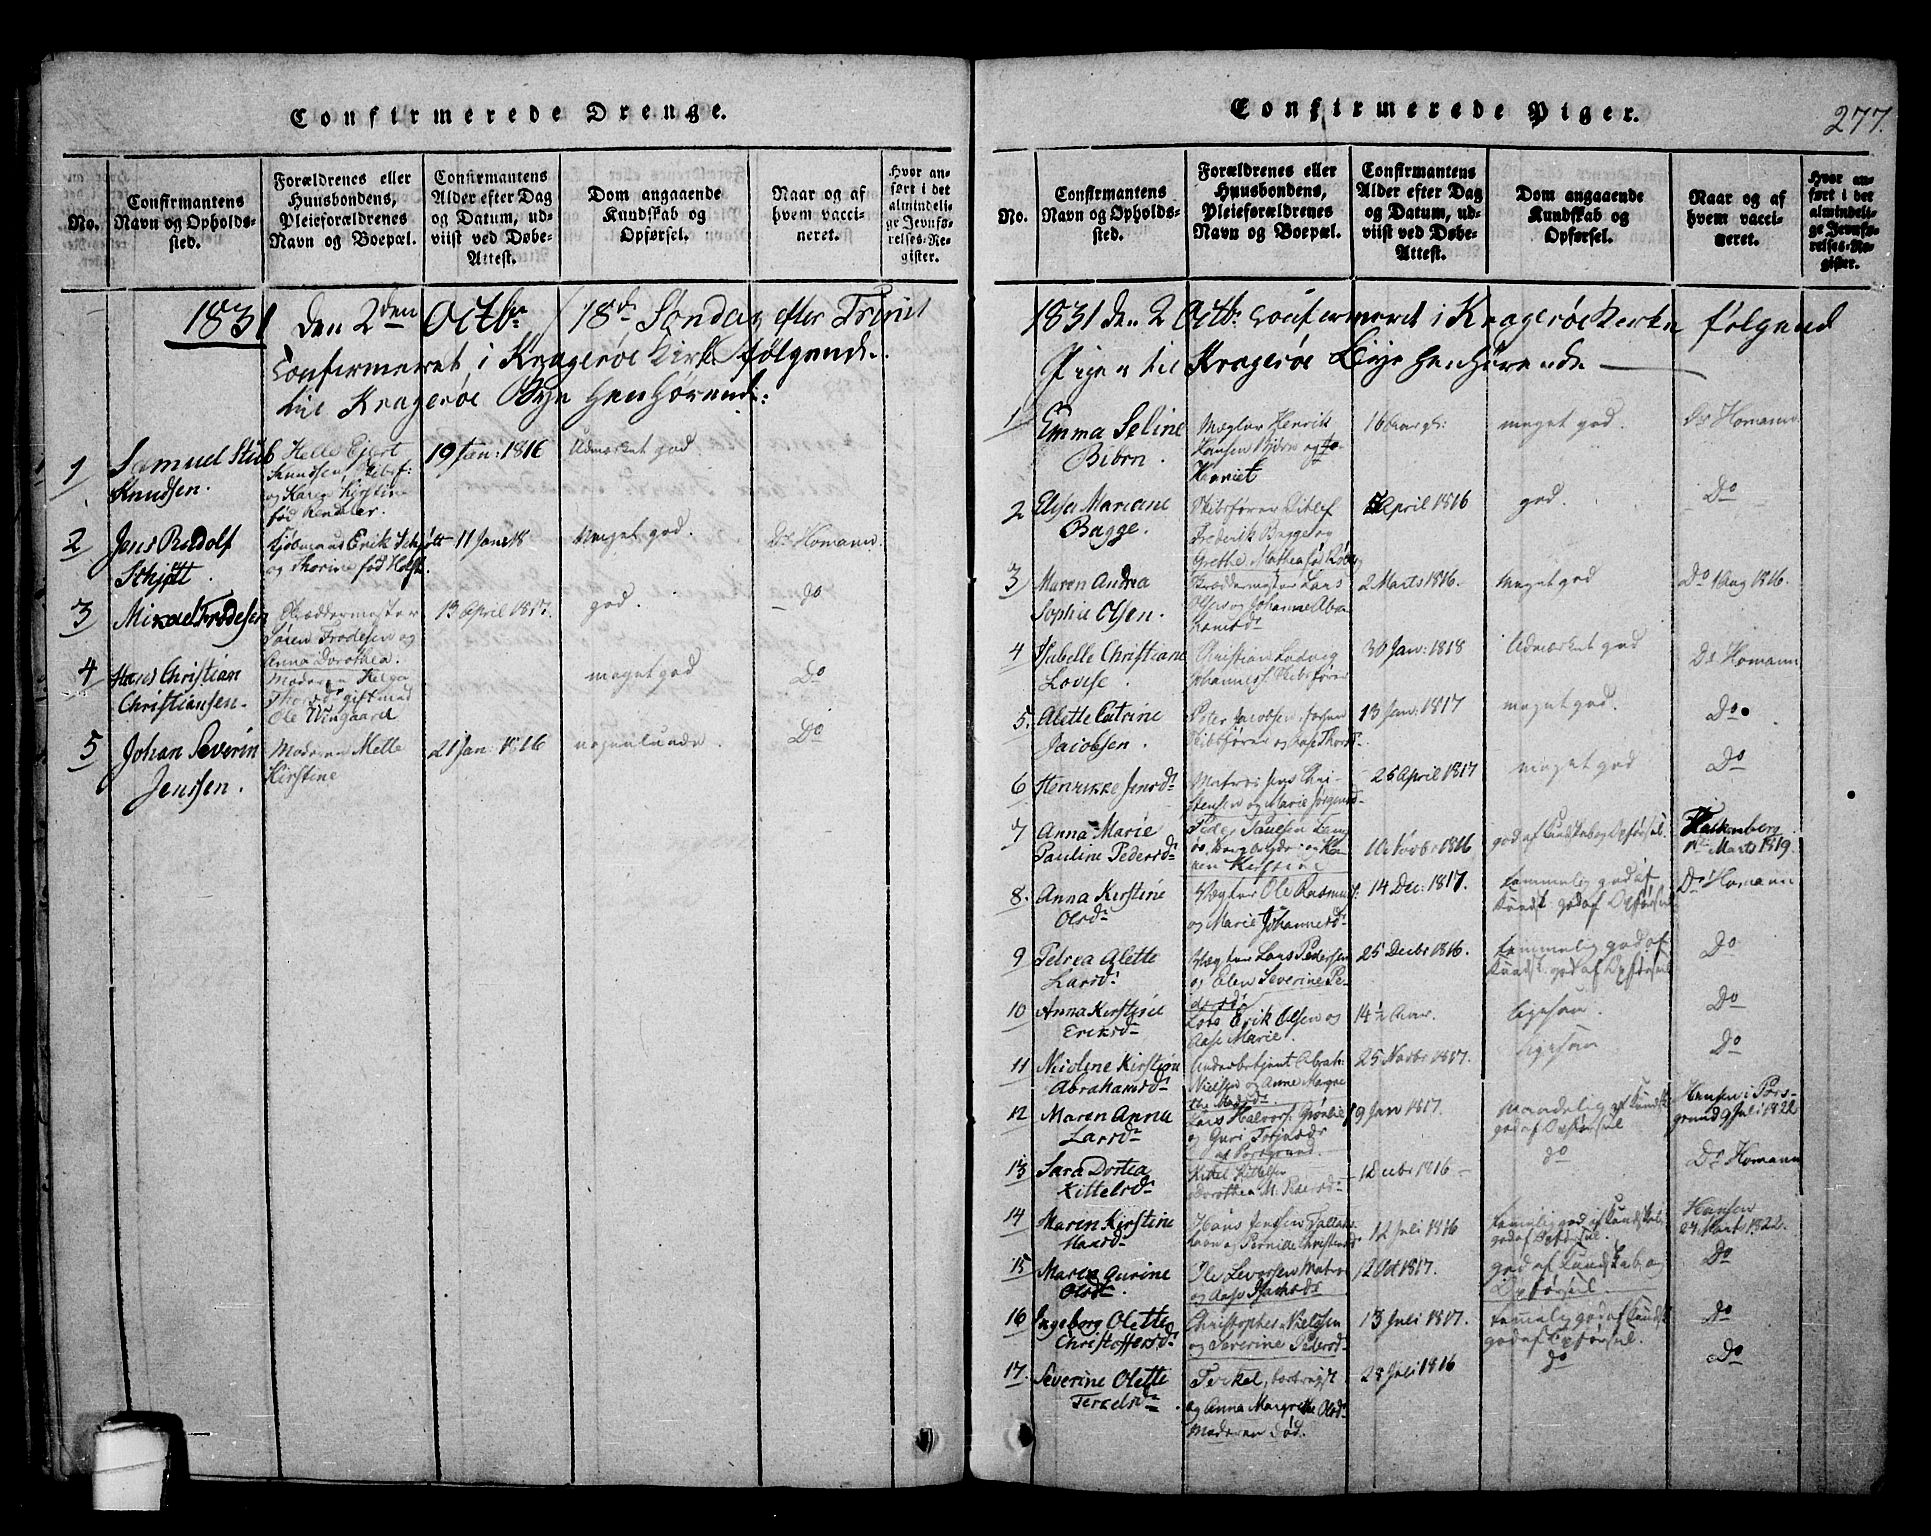 Confirmerede Drenge.
No.
Confirmantens Navn og Opholds-sted.
Forældrenes eller Huusbondens, Pleieforældrenes Navn og Boepæl.
Confirmantens Alder efter Dag og Datum, ud-viist ved Døbe-Attest.
Dom angaaende Kundskab og Opførsel.
Naar og af hvem vacci-neret.
Hvor an-ført i det almindeli-ge Jevnfø-relses-Re-gister.
1831 den 2den Octbr 18de Søndag efter Trinit
confirmeret i Kragerøe Kirke følgende
til Kragerøe Bye henhørende:
1 Samuel Stub Knudsen. Helle Ejert Knudsen, Skibsf: og Karen Kirstine fød 19 Jan: 1816 Udmærket god
2 Jens Rudolf Schjøtt. Kjøbmand Erik Schjøtt og Thorine fød Holst. 11 Jan 18 Meget god. Dr Homann.
3 Mikael Frodesen Skræddermester Søren Frodesen og Anna Dorothea. 13 April 1817. god. do
4 Hans Christian Christiansen. Moderen Helga Thorsd gift med Ole Wingaard meget god Do
5 Johan Severin Jenssen. Moderen Mette Kirstine 21 Jan 1816 Do
Confirmerede Piger.
277.
No.
Confirmantens Navn og Opholds-sted.
Forældrenes eller Huusbondens, Pleieforældrenes Navn og Boepæl.
Confirmantens Alder efter Dag og Datum, ud-viist ved Døbe-Attest.
Dom angaaende Kundskab og Opførsel.
Naar og af hvem vacci-neret.
Hvor an-ført i det almindeli-ge Jevnfø-relses-Re-gister.
1831 den 2 Octb: confirmeret i Kragerøe Kirke følgende
Piger til Kragerøe Bye henhørende
1 Emma Seline Biørn. Mægler Henrik Hansen Bjørn og Harriet 16 Aar meget god. Dr Homann
2 Elsa Mariane Bagge. Skibsfører Ditlef Frederik Bagge og Grethe Mathea fød April 1816 god. Do
3 Maren Andrea Sophie Olsen. Skræddermester Lars Olsen og Johanne Abrahamsdr 2 Marts 1816. Meget god Do 1 Aug 1816.
4 Isabelle Christiane Lovise. Christian Ludvig Johanness Skibsfører 30 Jan: 1818 Udmærket god Dr Homann
5. Alette Catrine Jacobsen. Peter Jacobsen Skibsfører og Aase Thorsd 13 Jan: 1817 meget god. Do.
6 Henrikke Jensdr Matros Jens Christensen og Marie Jørgensd. 25 April 1817 meget god Do
7 Anna Marie Pauline Pedersdr Peder Paulsen og Karen Kirstine 1816 god af Kundskab og Opførsel. Falkenberg Marts 1819.
8. Anna Kirstine Olsdr Vægter Ole Rasmus: og Marie Johannesdr 14 Dec: 1817. temmelig god af Kundsk. god af Opførsel Dr Homann
9 Petrea Alette Larsdr Vægter Lars Pedersen og Elen Severine Pedersd: 25 Decbr 1816. temmelig god af Kundsk. god af Opførsel Do
10 Anna Kirstine Eriksdr Lods Erik Olsen og Aase Marie. 14½ Aar. ligesom. Do
11 Nicoline Kirstine Abrahamsdr Underbetjent Abrah: Nielsen og Anne Margrethe Madsdr. 25 Novbr 1817. ligesom Do
12 Maren Anna Larsdr Lars Halvors: og Guri af Porsgrund. 9 Jan 1817. Maadelig af Kundsk god af Opførsel Hansen i Porsgrund 9 Juli 1822
13 Sara Dortea Kittelsdr Kittel Kittelsen Dorothea M. Pedersdr 1 Decbr 1816 do Dr Homann
14 Maren Kirstine Hansdr Hans Jensen og Pernille Christensd 12 Juli 1816 temmelig god af Kundskab god af Opførsel. Hansen 27 Marts 1822.
15 Maren Gurine Olsdr. Ole Levorsen Matros og Aase Isaksdr 12 Oct 1817. god af Kundskab og Opførsel Do
16 Ingeborg Olette Christoffersdr Christopher Nielsen og Severine Pedersd 13 Juli 1817. temmelig god af Kundsk god af Opførsel. do
17. Severine Olette Terkelsdr Terkel, bortreist og Anna Margrethe Olsdr Moderen død. 28 Juli 1816 do Do